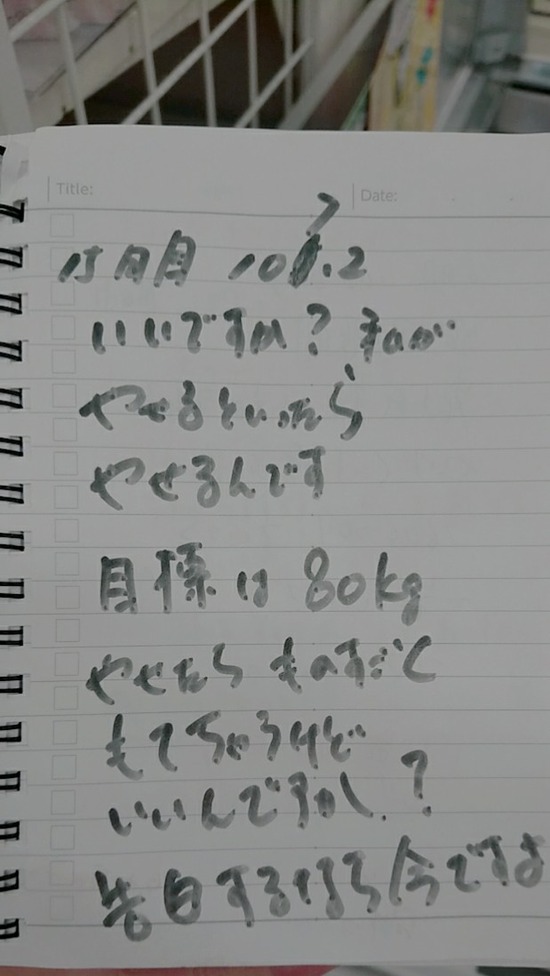 Title: Date:
15日目 107.2
いいですか? 私が
やせるといったら
やせるんです
目標は 80kg
やせたら ものすごく
もてちゃうけど
いいんですか?
告白するなら今ですよ